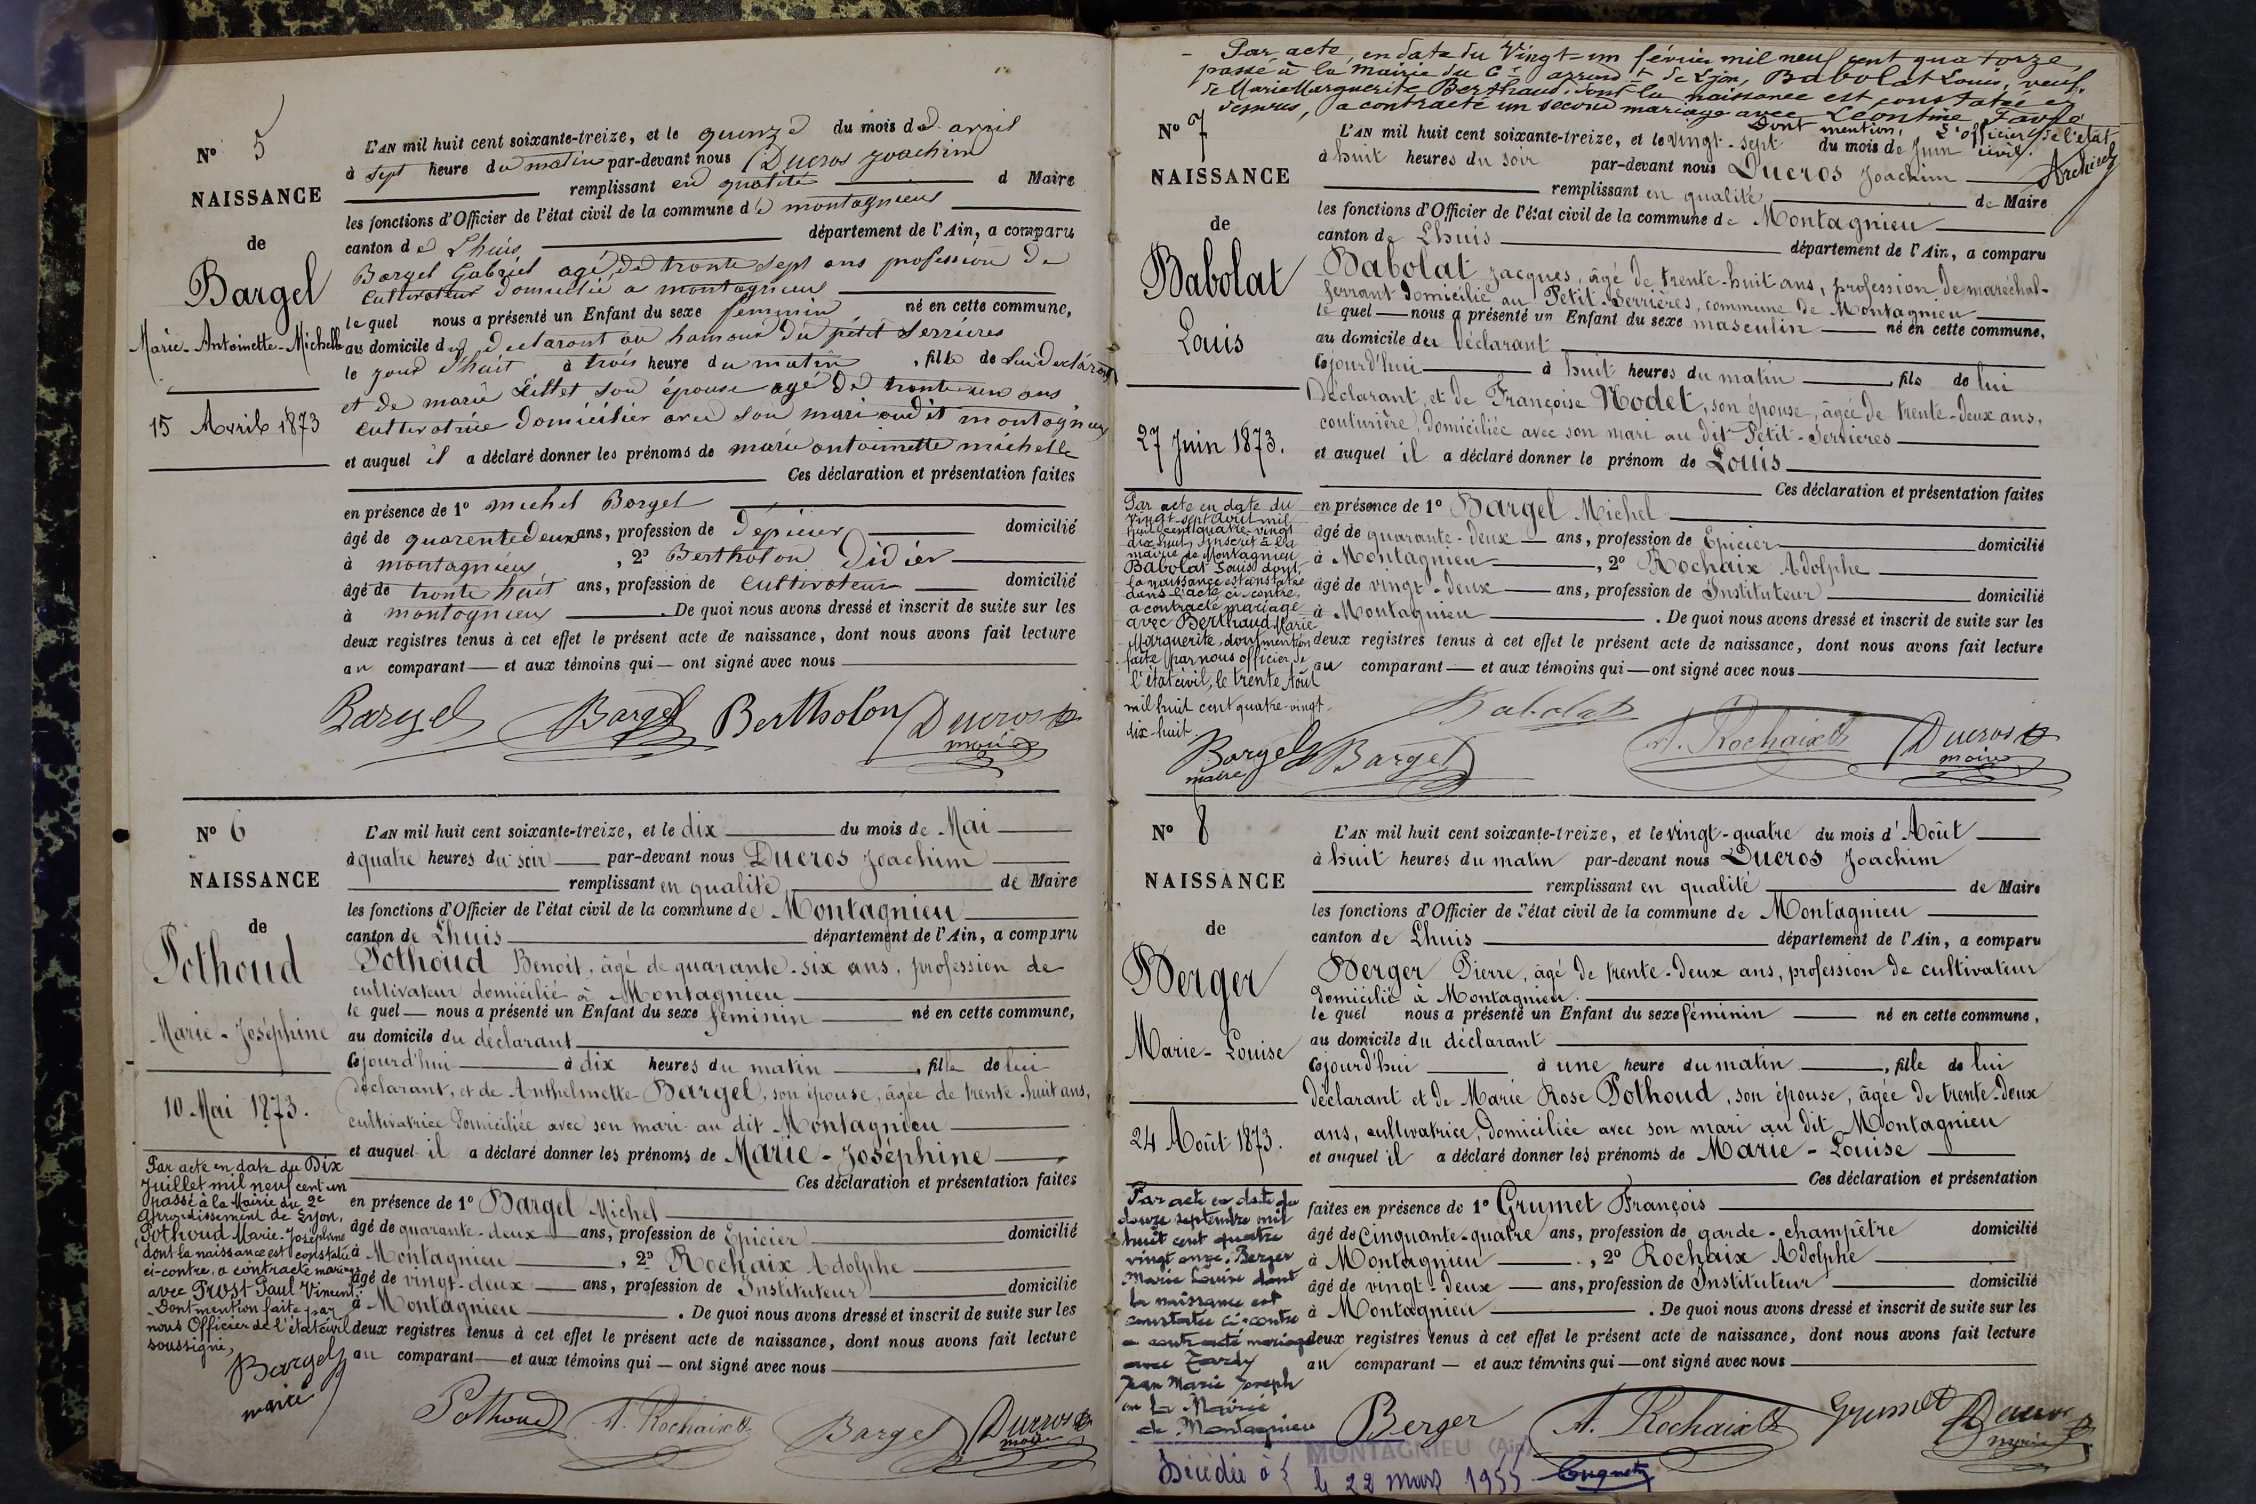 No 5
NAISSANCE
de
Bargel
Marie-Antoinette-Michelle
15 Avril 1873
L'AN mil huit cent soixante-treize, et le quinze du mois de avril
à sept heure du matin par-devant nous Ducros Joachim
remplissant en qualité d Maire
les fonctions d'Officier de l'état civil de la commune de montagnieu
canton de Lhuis département de l'Ain, a comparu
Bargel Gabriel agé de trente sept ans profession de
cultivateur domicilié a montagnieu
le quel nous a présenté un Enfant du sexe feminin né en cette commune,
au domicile du declarant au hameau du petit Serrieres
le jour d'huit à trois heure du matin, fille de lui declarant
et de marie Littet son épouse agé de trente un ans
cultivatrice domicilier avec son mari audit montagnieu
et auquel il a déclaré donner les prénoms de marie antoinette michelle
Ces déclaration et présentation faites
en présence de 1º michel Bargel
âgé de quarente deux ans, profession de d'épicier domicilié
à montagnieu, 2º Bertholon Didier
âgé de trente huit ans, profession de cultivateur domicilié
à montagnieu. De quoi nous avons dressé et inscrit de suite sur les
deux registres tenus à cet effet le présent acte de naissance, dont nous avons fait lecture
au comparant — et aux témoins qui — ont signé avec nous
Bargel Bargel Bertholon Ducros
maire
No 6
NAISSANCE
de
Pothoud
Marie-Joséphine
10 Mai 1873.
Par acte en date du Dix
Juillet mil neuf cent un
passé à la Mairie du 2e
Arrondissement de Lyon,
Pothoud Marie-Joséphine
dont la naissance est constatée
ci-contre, a contracté mariage
avec Prost Paul Vincent.
Dont mention faite par
nous Officier de l'état civil
soussigné,
Bargel
maire
L'AN mil huit cent soixante-treize, et le dix du mois de Mai
à quatre heures du soir par-devant nous Ducros Joachim
remplissant en qualité de Maire
les fonctions d'Officier de l'état civil de la commune de Montagnieu
canton de Lhuis département de l'Ain, a comparu
Pothoud Benoit, âgé de quarante-six ans, profession de
cultivateur domicilié à Montagnieu
le quel — nous a présenté un Enfant du sexe féminin né en cette commune,
au domicile du déclarant
Cejourd'hui à dix heures du matin, fille de lui
déclarant, et de Anthelmette Bargel, son épouse, âgée de trente-huit ans,
cultivatrice domiciliée avec son mari au dit Montagnieu
et auquel il a déclaré donner les prénoms de Marie-Joséphine
Ces déclaration et présentation faites
en présence de 1º Bargel Michel
âgé de quarante-deux ans, profession de Epicier domicilié
à Montagnieu, 2º Rochaix Adolphe
âgé de vingt-deux ans, profession de Instituteur domicilié
à Montagnieu. De quoi nous avons dressé et inscrit de suite sur les
deux registres tenus à cet effet le présent acte de naissance, dont nous avons fait lecture
au comparant — et aux témoins qui — ont signé avec nous
Pothoud A. Rochaix Bargel Ducros
maire
Par acte, en date du Vingt-un février mil neuf cent quatorze,
passé à la Mairie du 6e arrondt de Lyon, Babolat Louis, veuf
de Marie Marguerite Berthaud, dont la naissance est constatée ci
dessous, a contracté un second mariage avec Léontine Favre
Dont mention, L'officier de l'état
civil.
No 7
NAISSANCE
de
Babolat
Louis
27 Juin 1873.
Par acte en date du
vingt-sept Août mil
huit cent quatre-vingt
dix huit, inscrit à la
mairie de Montagnieu
Babolat Louis dont
la naissance est constatée
dans l'acte ci-contre,
a contracté mariage
avec Berthaud Marie
Marguerite, dont mention
faite par nous officier de
l'état civil, le trente Août
mil huit cent quatre-vingt-
dix-huit.
Bargel
maire
L'AN mil huit cent soixante-treize, et le vingt-sept du mois de Juin
à huit heures du soir par-devant nous Ducros Joachim
remplissant en qualité de Maire
les fonctions d'Officier de l'état civil de la commune de Montagnieu
canton de Lhuis département de l'Ain, a comparu
Babolat Jacques, âgé de trente-huit ans, profession de maréchal-
ferrant domicilié au Petit-Serrières, commune de Montagnieu
le quel — nous a présenté un Enfant du sexe masculin né en cette commune,
au domicile du déclarant
Cejourd'hui à huit heures du matin, fils de lui
Déclarant, et de Françoise Nodet, son épouse, âgée de trente-deux ans,
couturière, domiciliée avec son mari au dit Petit-Serrières
et auquel il a déclaré donner le prénom de Louis
Ces déclaration et présentation faites
en présence de 1º Bargel Michel
âgé de quarante-deux ans, profession de Epicier domicilié
à Montagnieu, 2º Rochaix Adolphe
âgé de vingt-deux ans, profession de Instituteur domicilié
à Montagnieu. De quoi nous avons dressé et inscrit de suite sur les
deux registres tenus à cet effet le présent acte de naissance, dont nous avons fait lecture
au comparant — et aux témoins qui — ont signé avec nous
Babolat
Bargel A. Rochaix Ducros
maire
No 8
NAISSANCE
de
Berger
Marie-Louise
24 Août 1873.
Par acte en date du
douze septembre mil
huit cent quatre
vingt onze, Berger
Marie Louise dont
la naissance est
constatée ci-contre
a contracté mariage
avec Tardy
Jean Marie Joseph
en la Mairie
de Montagnieu
L'AN mil huit cent soixante-treize, et le vingt-quatre du mois d'Août
à huit heures du matin par-devant nous Ducros Joachim
remplissant en qualité de Maire
les fonctions d'Officier de l'état civil de la commune de Montagnieu
canton de Lhuis département de l'Ain, a comparu
Berger Pierre, âgé de trente-deux ans, profession de cultivateur
domicilié à Montagnieu.
le quel nous a présenté un Enfant du sexe féminin né en cette commune,
au domicile du déclarant
Cejourd'hui à une heure du matin, fille de lui
déclarant et de Marie Rose Pothoud, son épouse, âgée de trente-deux
ans, cultivatrice, domiciliée avec son mari au dit Montagnieu
et auquel il a déclaré donner les prénoms de Marie-Louise
Ces déclaration et présentation
faites en présence de 1º Grumet François
âgé de cinquante-quatre ans, profession de garde-champêtre domicilié
à Montagnieu, 2º Rochaix Adolphe
âgé de vingt-deux ans, profession de Instituteur domicilié
à Montagnieu. De quoi nous avons dressé et inscrit de suite sur les
deux registres tenus à cet effet le présent acte de naissance, dont nous avons fait lecture
au comparant — et aux témoins qui — ont signé avec nous
Berger A. Rochaix Grumet Ducros
maire
Décédée à MONTAGNIEU (Ain)
le 22 mars 1955